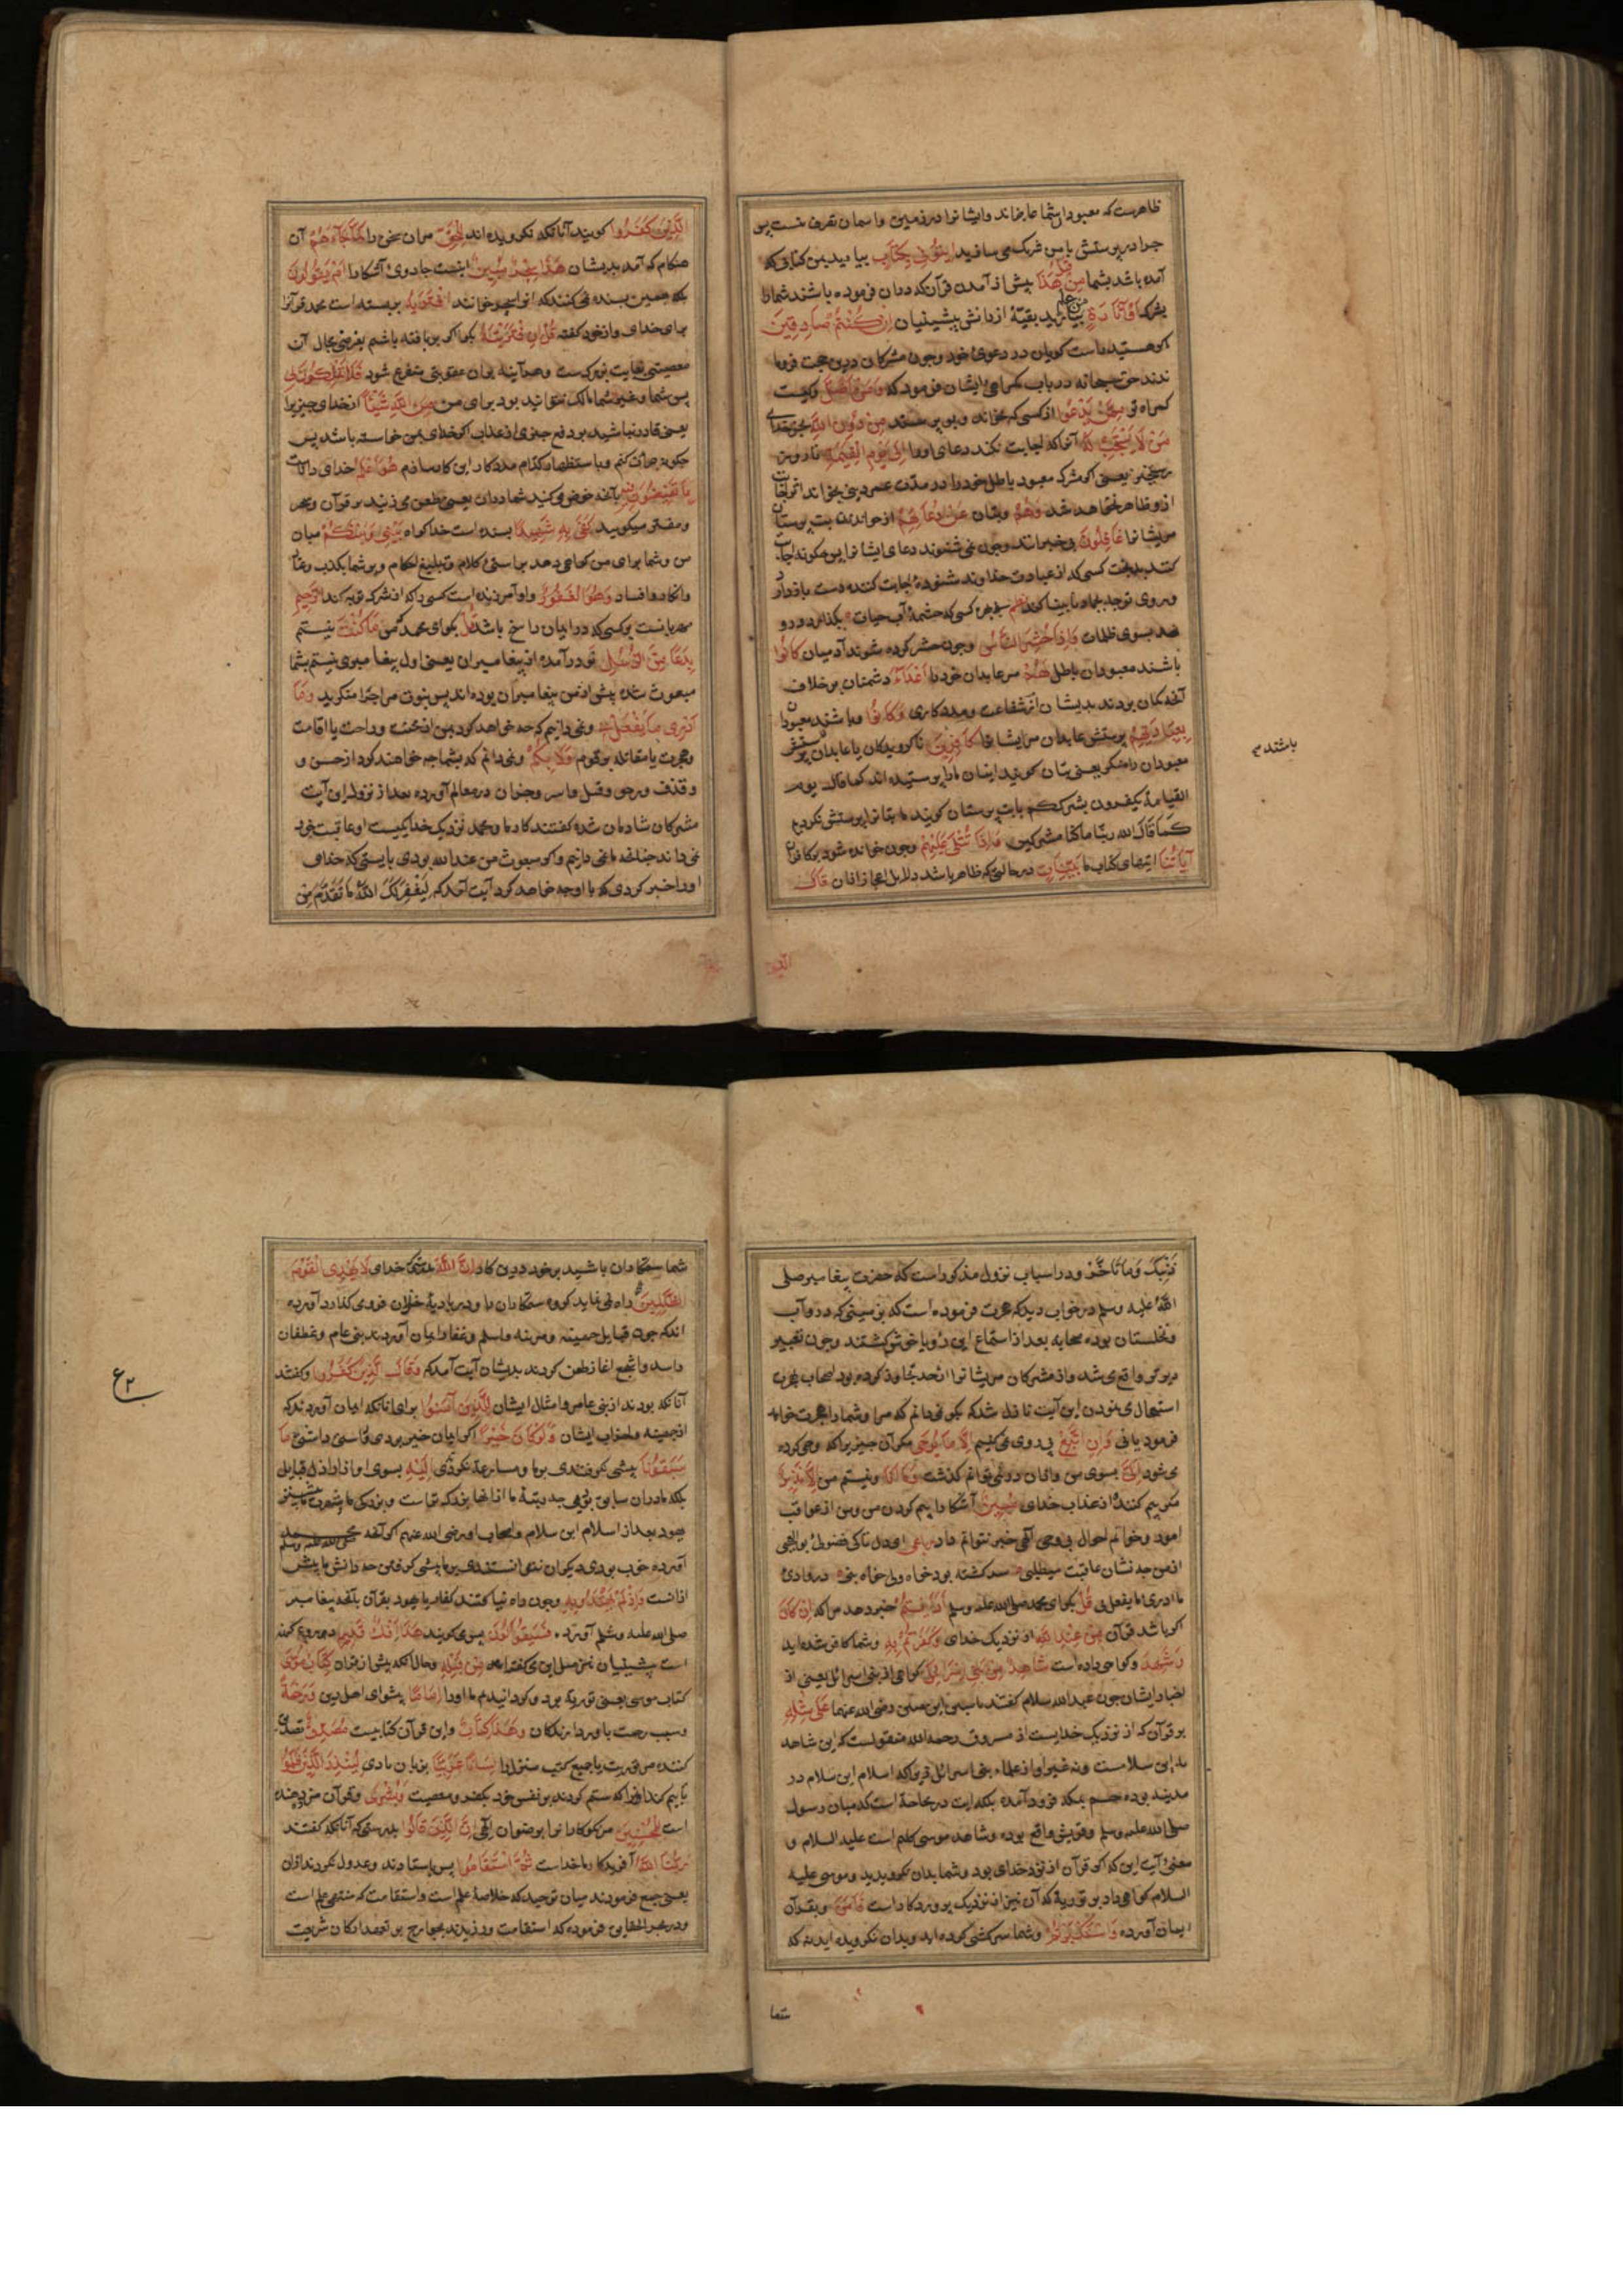 ظاهرست که معبودان شما عاجزاند وایشانرا در زمین و اسمان تصرف نیست پس
چرا در پرستش با من شریک می سازید ایتونی بکتاب بیارید بمن کتابی که
آمده باشد بشما من قبل هذا پیش از آمدن قرآن که دران فرموده باشند شمارا
بشرک أو أثارة من علم بیارید بقیّهٔ از دانش پیشینیان ان کنتم صادقین
اکر هستید راست کویان در دعوی خود وچون مشرکان درین حجت فرو ما
ندند حق سبحانه در باب کمراهی ایشان فرمود که ومن أضل وکیست
کمراه تر ممن یدعوا از کسی که بخواند وبپرستد من دون الله بجز خدای
من لا یستجیب له آنرا که اجابت نکند دعای اورا الی یوم القیمة تا روز
رستخیز یعنی اکر مشرک معبود باطل خودرا در مدّت عمر دنیی بخواند اثر اجابت
ازو ظاهر نخواهد شد وهم وبتان عن دعائهم از خواندن بت پرستان
مریشانرا غافلون بی خبرانند وچون نمی شنوند دعای ایشانرا پس چکونه اجابت
کنند بدبخت کسی که از عبادت خداوند شنوندهٔ اجابت کننده دست بازدارد
وروی توجه بجماد نابینا کند نظم بی بهره کسی که چشمهٔ آب حیات بگذارد ورو
نهد بسوی ظلمات واذا حشر الناس وچون حشر کرده شوند آدمیان کانوا
باشند معبودان باطل لهم مر عابدان خودرا أعداء دشمنان بر خلاف
آنچه کمان بودند بدیشان از شفاعت ومددکاری وکانوا وباشند معبودان
بعبادتهم بپرستش عابدان مریشانرا کافرین ناکرویدکان یا عابدان پرستش
معبودان را منکر یعنی بتان کویند اینان مارا پرستیده اند کما قال یوم
القیامة یکفرون بشرککم یا بت پرستان کویند ما بتانرا پرستش نکردیم
کما قال الله ربنا ما کنا مشرکین واذا تتلی علیهم وچون خوانده شود بر کافران
آیاتنا ایتهای کتاب ما بینات در حالتی که ظاهر باشد دلایل اعجاز ازان قال
باشند
الذین
الذین کفروا کویند آنانکه نکرویده اند للحق مران سخن را لما جاءهم آن
هنکام که آمد بدیشان هذا سحر مبین اینست جادوی آشکارا ام یقولون
بلکه بهمین بسنده نمی کنند که انرا سحر خوانند افتریه بربسته است محمد قرآنرا
برای خدای واز خود گفته قل ان افتریته بکو اکر بربافته باشم بفرض محال آن
معصیتی بغایت بزرکست وهر آینه بران عقوبتی متفرع شود فلا تملکون لی
پس شما وغیر شما مالک نتوانید بود برای من من الله شیئا از خدای چیزیرا
یعنی قادر نباشید بر دفع چیزی از عذاب اکر خدای بمن خواسته باشد پس
چکونه جرأت کنم وباستظهار کدام مددکار این کار سازم هو أعلم خدای داناست
بما تفیضون فیه بآنچه خوض میکنید شما دران یعنی طعن می زنید بر قرآن وسحر
ومفتری میکویید کفی به شهیدا بسنده است خدا کواه بینی وبینکم میان
من وشما برای من کواهی دهد براستی کلام وتبلیغ احکام وبر شما بکذب وعناد
وانکار وافساد وهو الغفور واو آمرزنده است کسی را که از شرک توبه کند الرحیم
مهربانست بر کسی که در ایمان راسخ باشد قل بکو ای محمد که من ما کنت نیستم
بدعا من الرسل نو درآمده از پیغامبران یعنی اول پیغامبری نیستم بشما
مبعوث شده پیش از من پیغامبران بوده اند پس نبوت مرا چرا منکرید وما
أدری ما یفعل بی ونمی دانم که چه خواهد کرد بمن از محنت وراحت یا اقامت
وهجرت یا مقاتله بر قوم ولا بکم ونمی دانم که بشما چه خواهند کرد از حسن و
وقذف ورمی وقتل واسر وجز آن در معالم آورده بعد از نزول این آیت
مشرکان شادمان شده گفتند کار ما ومحمد نزدیک خدا یکیست او عاقبت خود
نمی داند چنانچه ما نمی دانیم واکر مبعوث من عند الله بودی بایستی که خدای
اورا خبر کردی که با او چه خواهد کرد آیت آمد که لیغفر لک الله ما تقدم من
ذنبک وما تأخر ودر اسباب نزول مذکور است که حضرت پیغامبر صلی
الله علیه وسلم در خواب دید که هجرت فرموده است که بزمینی که درو آب
ونخلستان بوده صحابه بعد از استماع این رؤیا خوش کشتند وچون تعبیر
دیرتر واقع می شد واز مشرکان مریشانرا از حد تجاوز کرده بود اصحاب بهجرت
استعجال می نمودند این آیت نازل شد که بکو نمی دانم که مرا وشمارا هجرت خواهند
فرمود یا نی وان اتبع پی روی نمی کنم الا ما یوحی مکر آن چیزیرا که وحی کرده
می شود الی بسوی من وازان درنمی توانم کذشت وما انا ونیستم من الا نذیر
مکر بیم کننده از عذاب خدای مبین آشکارا بیم کردن من ومن از عواقب
امور وخواتم احوال بی وحی آلهی خبر نتوانم داد رباعی ای دل تا کی فضولی بوالعجبی
از من چه نشان عاقبت میطلبی سرکشته بود خواه ولی خواه نبی در وادی
ما ادری ما یفعل بی قل بکو ای محمد صلی الله علیه وسلم أرأیتم خبر دهید مرا که ان کان
اکر باشد قرآن من عند الله از نزدیک خدای وکفرتم به وشما کافر شده اید
وشهد وکواهی داده است شاهد من بنی اسرائیل کواهی از بنی اسرائیل یعنی از
احبار ایشان چون عبدالله سلام گفتند یا میمین بن یامین رضی الله عنهما علی مثله
بر قرآن که از نزدیک خدایست از مسروق رحمه الله منقولست که این شاهد
نه ابن سلامست ونه غیر او از علماء بنی اسرائیل زیرا که اسلام ابن سلام در
مدینه بوده وحم بمکه فرود آمده بلکه این در محاجهٔ است که میان رسول
صلی الله علیه وسلم وقریش واقع بوده وشاهد موسی کلیم است علیه السلام و
معنی آیت این که اکر قرآن از نزد خدای بود وشما بدان نکرویدید وموسی علیه
السلام کواهی داد بر توریة که آن نیز از نزدیک پروردکار است فآمن وبقرآن
ایمان آورده واستکبرتم وشما سرکشی کرده اید وبدان نکرویده اید نه که
شما
شما ستمکاران باشید بر خود درین کار ان الله بدرستی که خدای لا یهدی القوم
الظالمین راه نمی نماید کروه ستمکاران را ودر بادیهٔ خذلان فرو می کذارد آورده
اند که چون قبایل جهینه ومزینه واسلم وغفار ایمان آوردند بنی عامر وغطفان
واسد واشجع اغاز طعن کردند بدیشان آیت آمد که وقال الذین کفروا وگفتند
آنانکه بودند از بنی عامر وامثال ایشان للذین آمنوا برای انانکه ایمان آوردند که
از جهینه واحزاب ایشان لو کان خیرا اکر ایمان خیر بودی وراستی داشتی ما
سبقونا پیشی نکرفتندی بر ما ومسارعة نکردندی الیه بسوی او از اراذل قبایل
بلکه ما دران سابق بودیمی چه رتبهٔ ما ازانها بزرکتراست وبزرکی ما بیشتر
یهود بعد از اسلام ابن سلام واصحاب او رضی الله عنهم اکر آنچه محمد صلی الله علیه وسلم
آورده خوب بودی دیکران نتوانستندی بر ما پیشی کرفتن چه دانش ما بیش
ازانست واذ لم یهتدوا به وچون راه نیافتند کفار یا یهود بقرآن یا آنچه پیغامبر
صلی الله علیه وسلم آورد فسیقولون پس می کویند هذا افک قدیم این دروغ کهنه
است پیشینیان نیز مثل این می گفته اند ومن قبله وحال آنکه پیش از قرآن کتاب موسی
کتاب موسی یعنی توریة بود وکردانیدیم ما اورا اماما پیشوای اهل دین ورحمة
وسبب رحمت باور دارندکان وهذا کتاب واین قرآن کتابیست مصدق تصدیق
کننده مر توریت یا جمیع کتب منزل را لسانا عربیا بزبان تازی لینذر الذین ظلموا
تا بیم کند انانرا که ستم کردند بر نفس خود بکفر ومعصیت وبشری وقرآن مژده دهنده
است للمحسنین مر نکوکارانرا برضوان آلهی ان الذین قالوا بدرستی که آنانکه گفتند
ربنا الله آفریدکار ما خداست ثم استقاموا پس باستادند وعدول نکردند ازان
یعنی جمع فرمودند میان توحید که خلاصهٔ علم است واستقامت که منتهی عمل است
ودر بحر الحقایق فرموده که استقامت ورزیدند بجوارح بر تعهد ارکان شریعت
ع ۲